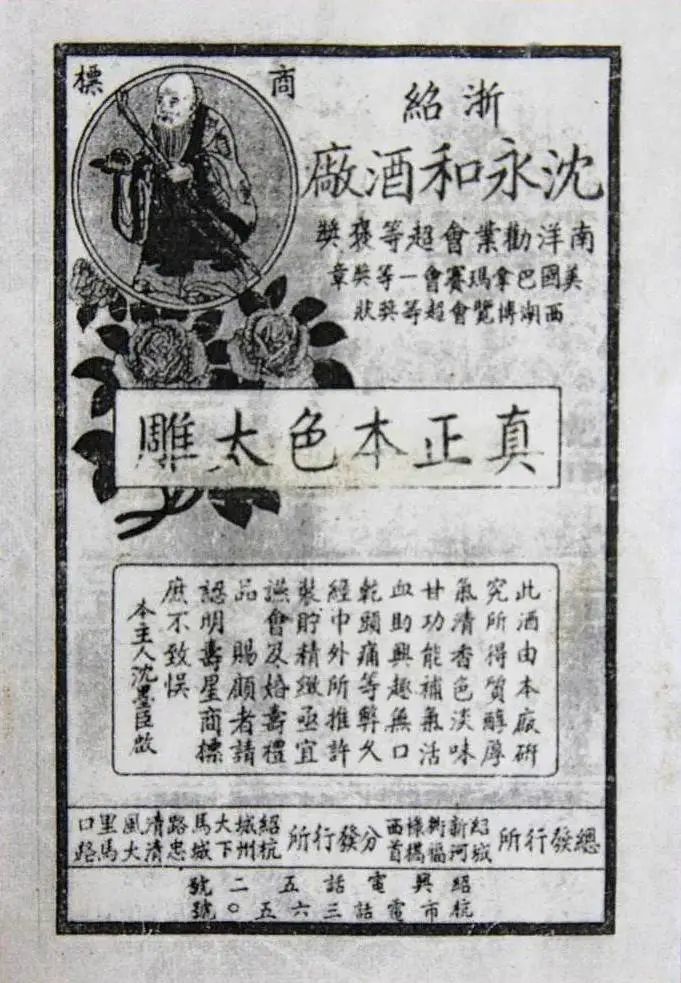 商標
浙紹
沈永和酒廠
南洋勸業會超等褒獎
美國巴拿瑪賽會一等獎章
西湖博覽會超等獎狀
真正本色太雕
此酒由本廠研
究所得質醇厚
氣清香色淡味
甘功能補氣活
血助興趣無口
乾頭痛等弊久
經中外所推許
裝貯精緻亟宜
讌會及婚壽禮
品 賜顧者請
認明壽星商標
庶不致悞
本主人沈墨臣啟
總發行所
紹城新河衖福橋西首
分發行所
紹城大馬路清風里口
杭州下城忠清大馬路
紹興電話五二號
杭市電話三六五〇號